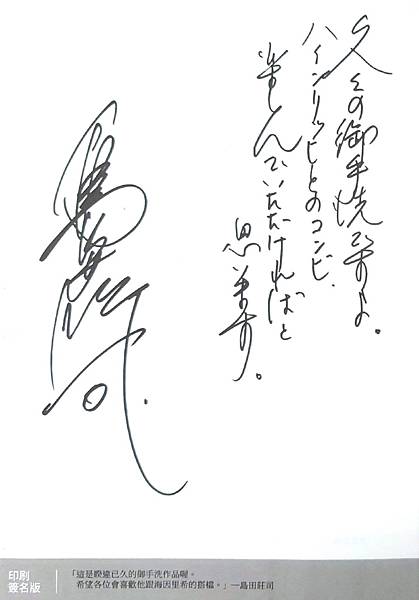 久々の御手洗ですよ。
ハインリッヒとのコンビ、
楽しんでいただければと
思います。
島田荘司
印刷
簽名版
「這是睽違已久的御手洗作品喔。
希望各位會喜歡他跟海因里希的搭檔。」—島田莊司